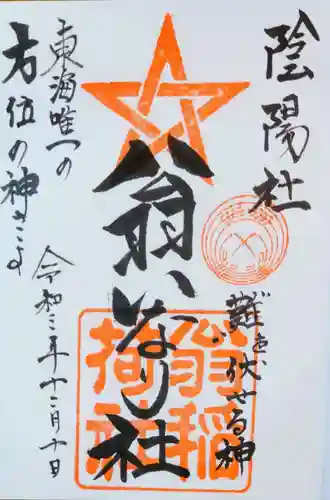 陰陽社
難を伏せる神
翁いなり社
翁稲荷社
東海唯一の
方位の神さま
令和三年十二月十日